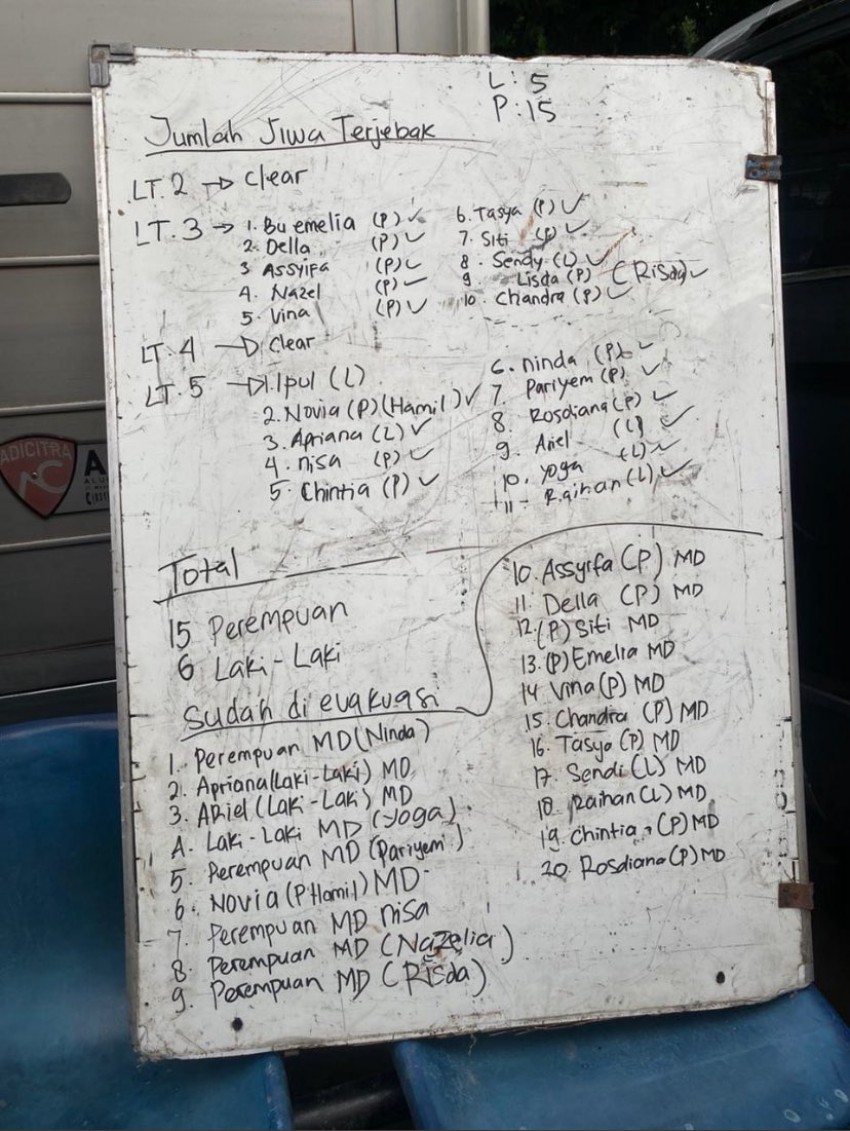 L : 5
P : 15
Jumlah Jiwa Terjebak
LT. 2 → Clear
LT. 3 → 1. Bu emelia (P) ✓
2. Della (P) ✓
3 Assyifa (P) ✓
4. Nazel (P) ✓
5. Vina (P) ✓
6. Tasya (P) ✓
7. Siti (P) ✓
8. Sendy (L) ✓
9 Lisda (P) (Risda) ✓
10. Chandra (P) ✓
LT. 4 → Clear
LT. 5 → 1. Ipul (L)
2. Novia (P) (Hamil) ✓
3. Apriana (L) ✓
4. nisa (P) ✓
5. Chintia (P) ✓
6. ninda (P) ✓
7. Pariyem (P) ✓
8. Rosdiana (P) ✓
9. Ariel (L) ✓
10. yoga (L) ✓
11 - Raihan (L) ✓
Total
15 Perempuan
6 Laki - Laki
Sudah di evakuasi
1. Perempuan MD (Ninda)
2. Apriana (Laki-Laki) MD
3. ARiel (Laki-Laki) MD
4. Laki-Laki MD (yoga)
5. Perempuan MD (Pariyem)
6. Novia (P Hamil) MD
7. Perempuan MD nisa
8. Perempuan MD (Nazelia)
9. Perempuan MD (Risda)
10. Assyifa (P) MD
11. Della (P) MD
12. (P) Siti MD
13. (P) Emelia MD
14 Vina (P) MD
15. Chandra (P) MD
16. Tasya (P) MD
17. Sendi (L) MD
18. Raihan (L) MD
19. Chintia (P) MD
20. Rosdiana (P) MD
ADICITRA
AC